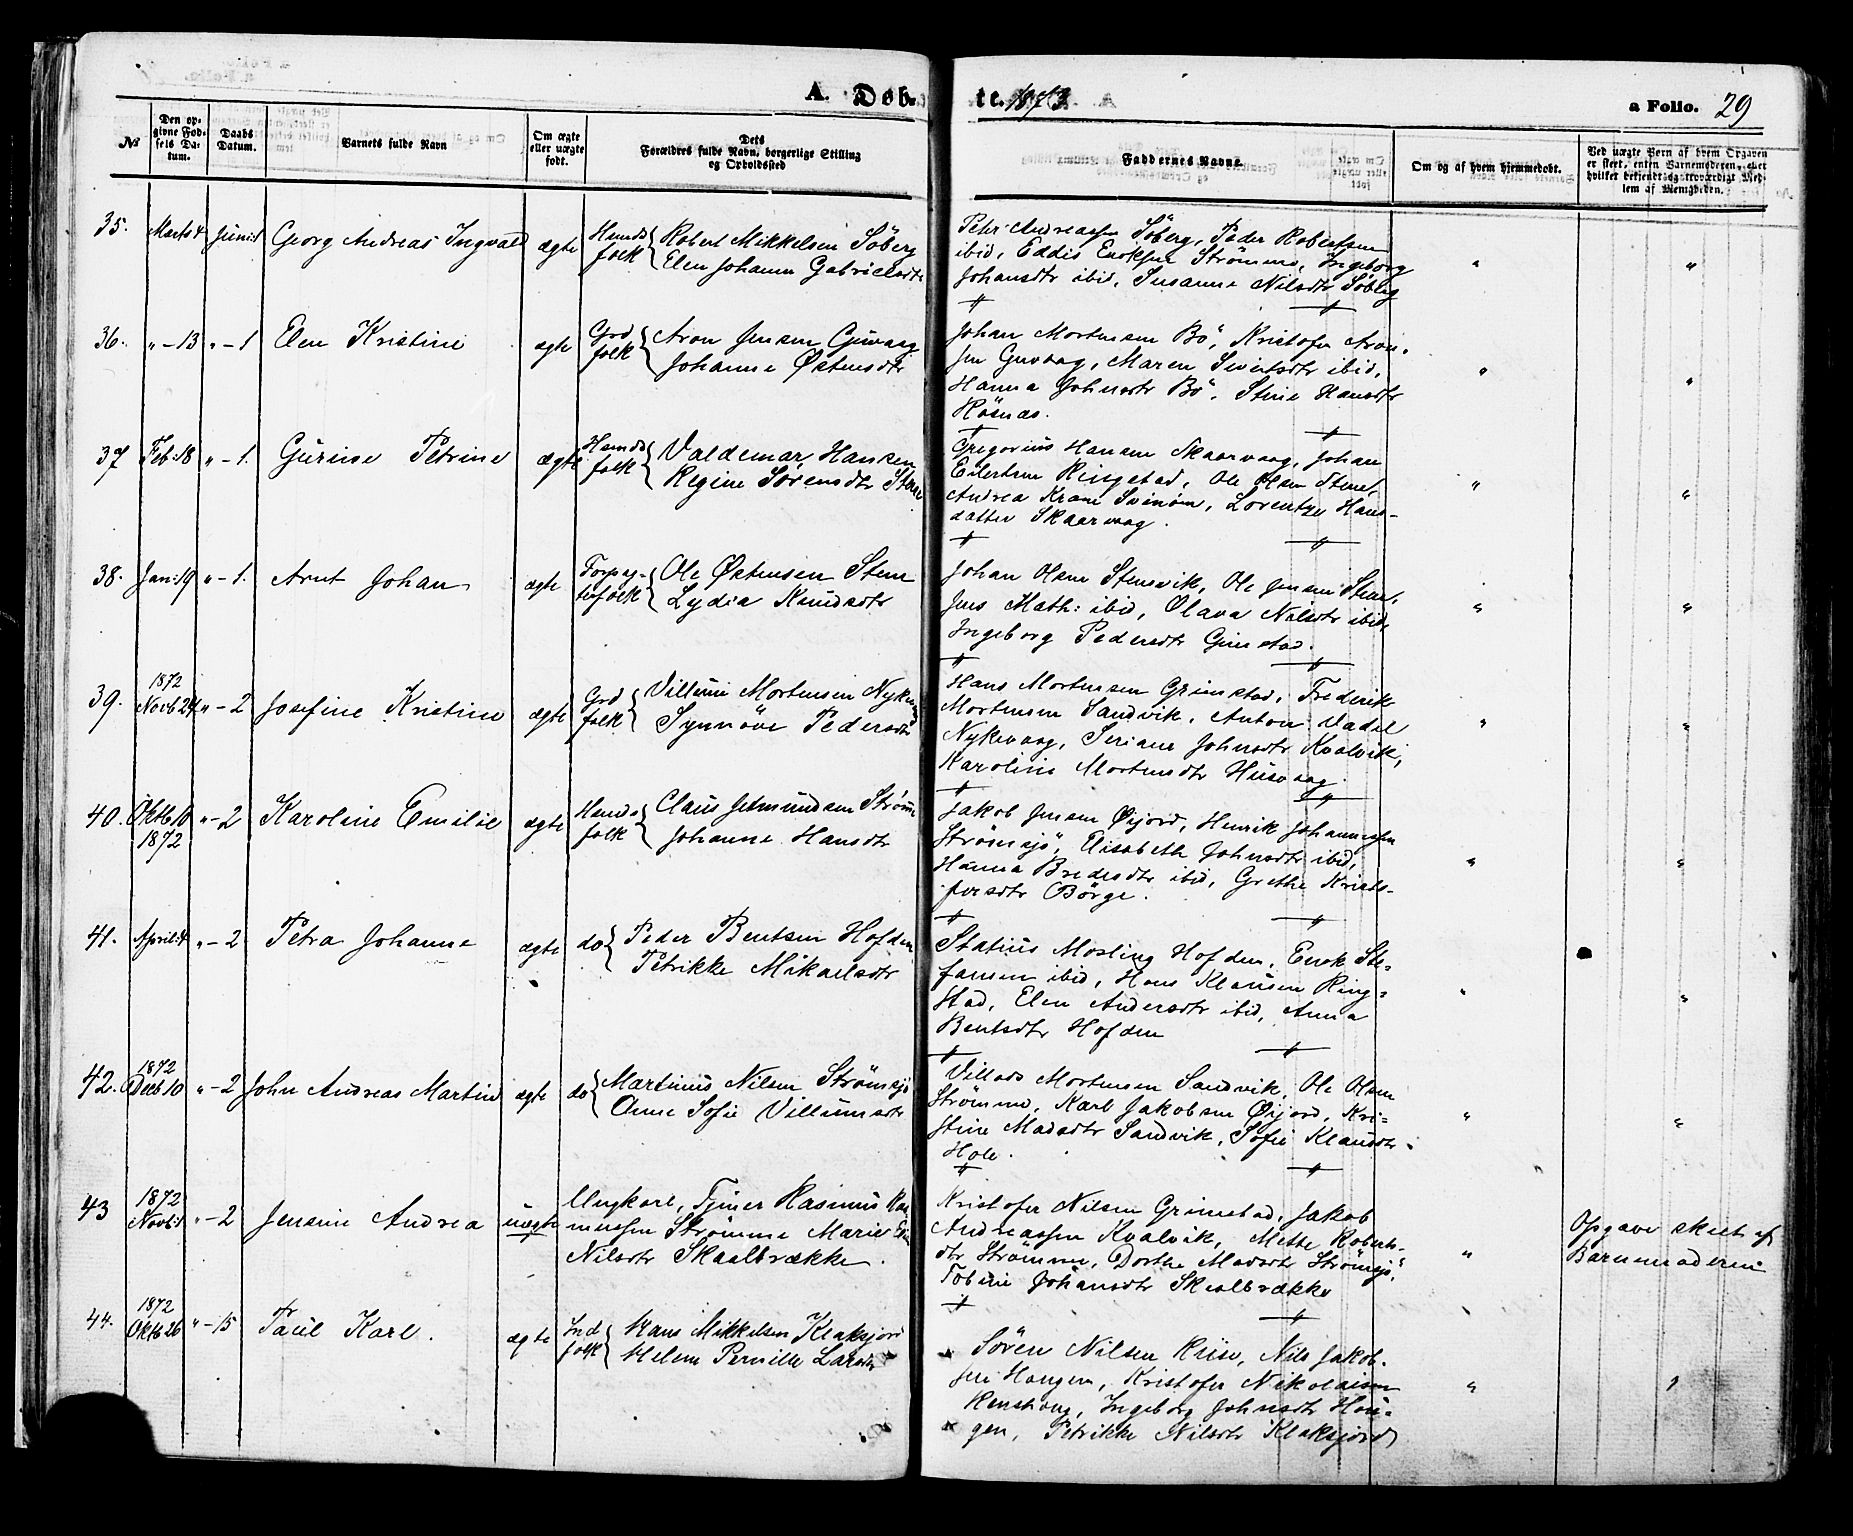 A. Döb-
te. 1873.
a Folio. 29
No
Den op-
givne Fød-
sels Da-
tum.
Daabs
Datum.
Barnets fulde Navn
Om ægte
eller uægte
født.
Dets
Forældres fulde Navn, borgerlige Stilling
og Opholdssted
Faddernes Navne.
Om og af hvem hjemmedøbt.
Ved uægte Børn af hvem Opgaven
er skeet, enten Barnemoderen, eller
hvilket bekjendt og troværdigt Med-
lem af Menigheden.
35. Marts 4 Juni 1 Georg Andreas Ingvald ægte Hmds
folk
Robert Mikkelsen Söberg
Elen Johanna Gabrielsdtr
Peter Andreassen Söberg, Peder Robertsen
ibid, Eddis Enoksen Strömme, Ingeborg
Johansdtr ibid, Susanna Nilsdtr Söberg
36. " - 13 " - 1 Elen Kristine ægte Grd
folk
Aron Jensen Guvaag
Johanna Østensdtr
Johan Mortensen Bö, Kristofer Aron-
sen Guvaag, Maren Sivertsdtr ibid,
Hanna Johnsdtr Bö, Stine Hansdtr
Rösnæs.
37 Feb: 18 " - 1. Gurine Petrine ægte Hmds
folk
Valdemar Hansen
Regine Sörensdtr Stene
Gregorius Hansen Skaarvaag, Johan
Eilertsen Ringstad, Ole Olsen Stene,
Andrea Krane Svinöen, Lorentze Hans-
datter Skaarvaag.
38. Jan: 19 " - 1. Arnt Johan ægte Forpag-
terfolk
Ole Østensen Stene
Lydia Knudsdtr
Johan Olsen Stensvik, Ole Jensen Stene,
Jens Math: ibid, Olava Nilsdtr ibid,
Ingeborg Pedersdtr Gimstad.
39. 1872
Novb 24 " - 2 Josefine Kristine ægte Grd
folk
Villum Mortensen Nykvaag
Synnöve Pedersdtr
Hans Mortensen Grimstad, Frederik
Mortensen Sandvik, Anton Vadel
Nykvaag, Seriane Johnsdtr Kvalvik,
Karoline Mortensdtr Husvaag.
40. Oktb 10
1872 " - 2 Karoline Emilie ægte Hmds
folk
Claus Jetmundsen Strömme
Johanne Hansdtr
Jakob Jensen Øijord, Henrik Johannessen
Strömsjö, Elisabeth Johnsdtr ibid,
Hanna Bredesdtr ibid, Grethe Kristo-
fersdtr Börge.
41. April: 4 " - 2 Petra Johanne ægte do
Peder Bentsen Hofden
Petrikke Mikaelsdtr
Statius Mosling Hofden, Enok Ste-
fansen ibid, Hans Klausen Ring-
stad, Elen Andersdtr ibid, Anna
Bentsdtr Hofden
42. 1872
Decb 10 " - 2 John Andreas Martin ægte do
Martinus Nilsen Strömsjö
Anne Sofie Villumsdtr
Villads Mortensen Sandvik, Ole Olsen
Strömme, Karl Jakobsen Øijord, Kri-
stine Madsdtr Sandvik, Sofie Klausdtr
Hole.
43 1872
Novb: 1 " - 2 Jensine Andrea uægte
Ungkarl, Tjener Rasmus Ras-
mussen Strömme Marie Elen
Nilsdtr Skaalbrække.
Kristofer Nilsen Grimstad, Jakob
Andreassen Kvalvik, Mette Roberts-
dtr Strömme, Dorthe Madsdtr Strömsjö,
Tobine Johansdtr Skaalbrække
Opgave skeet af
Barnemoderen
44. 1872
Oktb 26 " - 15 Paul Karl. ægte Ind
folk
Hans Mikkelsen Klaksjord
Helene Pernille Larsdtr
Sören Nilsen Riise, Nils Jakob-
sen Haugen, Kristofer Nikolaisen
Ingeborg Johnsdtr Hau-
gen, Petrikke Nilsdtr Klaksjord